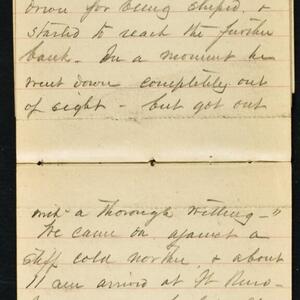 down for being stupid, &
started to reach the further
bank. In a moment he
went down completely out
of sight - but got out
with a thorough wetting - "
We came on against a
stiff cold norther & about
11 am arrived at Ft